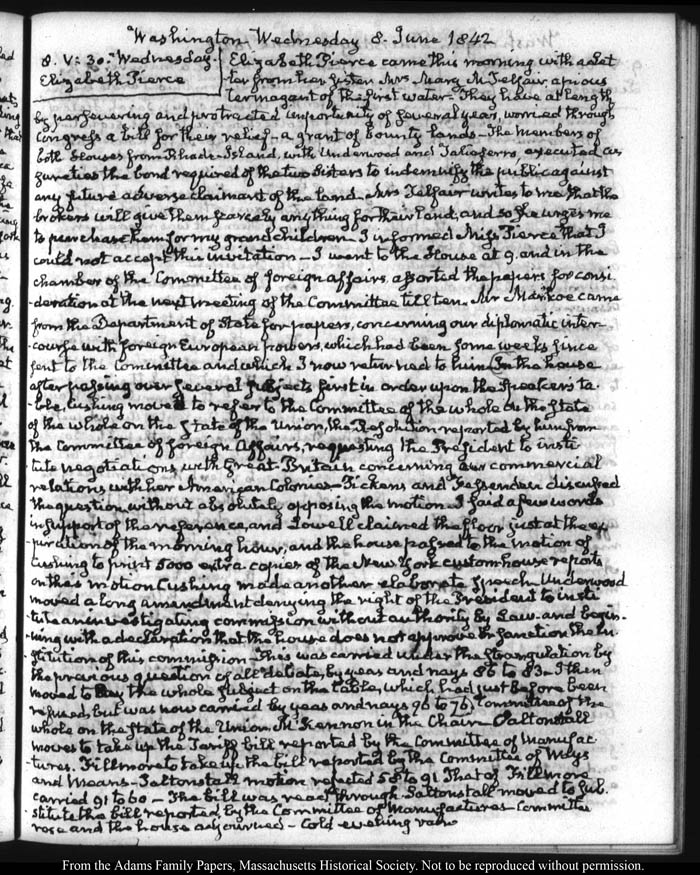 Washington Wednesday 8. June 1842
8. V: 30. Wednesday.
Elizabeth Pierce
Elizabeth Pierce came this morning with a Let
ter from her sister Mrs Mary M Telfair a pious
termagant of the first water. They have at length
by persevering and protracted importunity of several years, worried through
Congress a bill for their relief, a grant of bounty lands. The members of
both houses from Rhode-Island, with Underwood and Taliaferro, executed as
sureties the bond required of the two Sisters to indemnify the public against
any future adverse claimant of the land. Mrs Telfair writes to me that the
brokers will give them scarcely any thing for their land, and so she urges me
to purchase them for my grand children. I informed Miss Pierce that I
could not accept this invitation. I went to the House at 9. and in the
chamber of the Committee of foreign affairs, assorted the papers for consi-
-deration at the next meeting of the Committee till ten. Mr Markoe came
from the Department of State for papers, concerning our diplomatic inter-
-course with foreign European powers, which had been some weeks since
sent to the Committee and which I now returned to him. In the house
after passing over several subjects first in order upon the Speaker's ta-
ble, Cushing moved to refer to the Committee of the whole on the state
of the whole on the state of the Union, the Resolution reported by him from
the Committee of foreign Affairs, requesting the President to insti
tute negotiations with Great-Britain concerning our commercial
relations with her American Colonies. Pickens and Fessenden discussed
the question without absolutely opposing the motion. I said a few words
in support of the reference, and Lowell claimed the floor just at the ex
piration of the morning hour, and the house passed to the motion of
Cushing to print 5000 extra copies of the New York custom house reports
on their motion Cushing made another elaborate speech. Underwood
moved a long amendment denying the right of the President to insti
tute an investigating commission without authority by Law. and begin-
-ning with a declaration that the house does not approve or sanction the in-
stitution of this commission. This was carried under the strangulation by
the previous question of all debate, by yeas and nays 86 to 83. I then
moved to lay the whole subject on the table, which had just before been
refused, but was now carried by yeas and nays 96 to 76. Committee of the
whole on the state of the Union. McKennon in the Chair. Saltonstall
moves to take up the Tariff bill reported by the Committee of Manufac-
-tures. Fillmore to take up the bill reported by the Committee of Ways
and Means. Saltonstall motion rejected 58 to 91 That of Fillmore
carried 91 to 60 — The bill was read through. Saltonstall moved to sub.
stitute the bill reported by the Committee of Manufactures. Committee
rose and the house adjourned. Cold evening
From the Adams Family Papers, Massachusetts Historical Society. Not to be reproduced without permission.